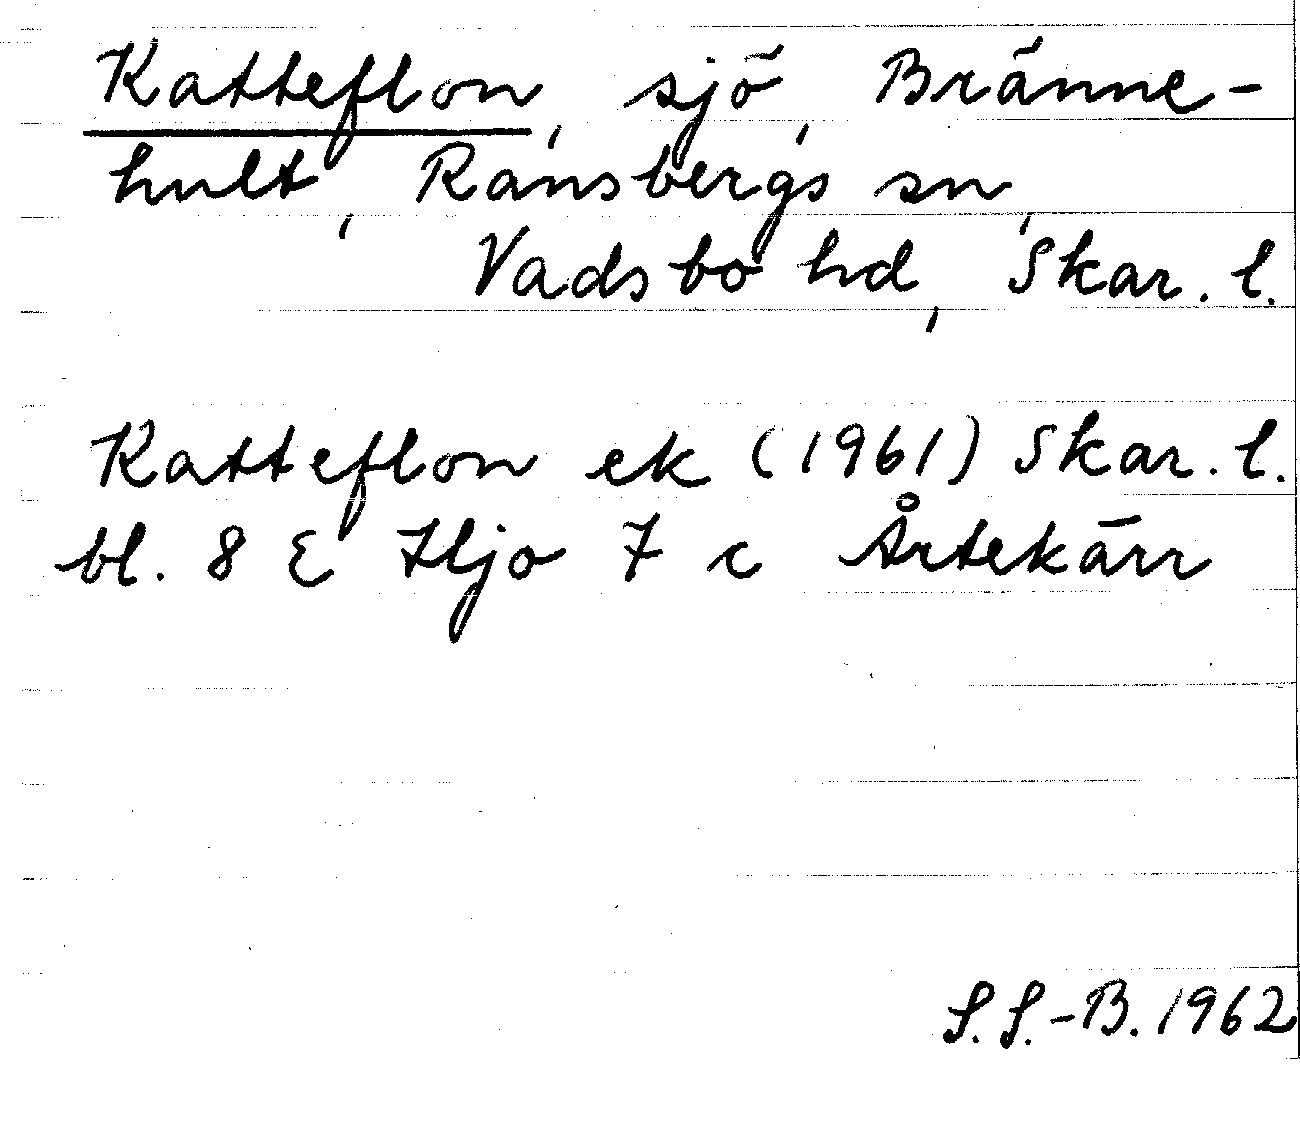 Katteflon, sjö, Bränne-
hult, Ransbergs sn,
Vadsbo hd, Skar. l.
Katteflon ek (1961) Skar. l.
bl. 8 E Hjo 7 c Årtekärr
S. S.-B. 1962